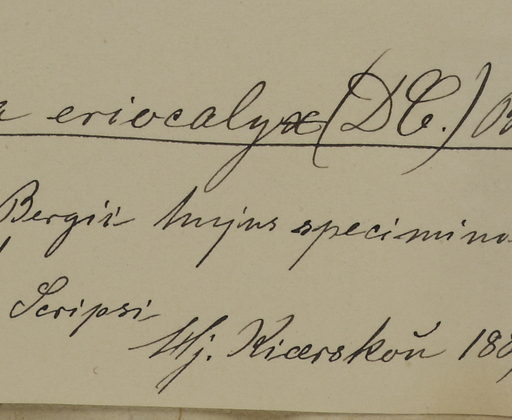 a eriocalyx (DC.) B
Bergii hujus specimina
Scripsi
Hj. Kiærskoŭ 188